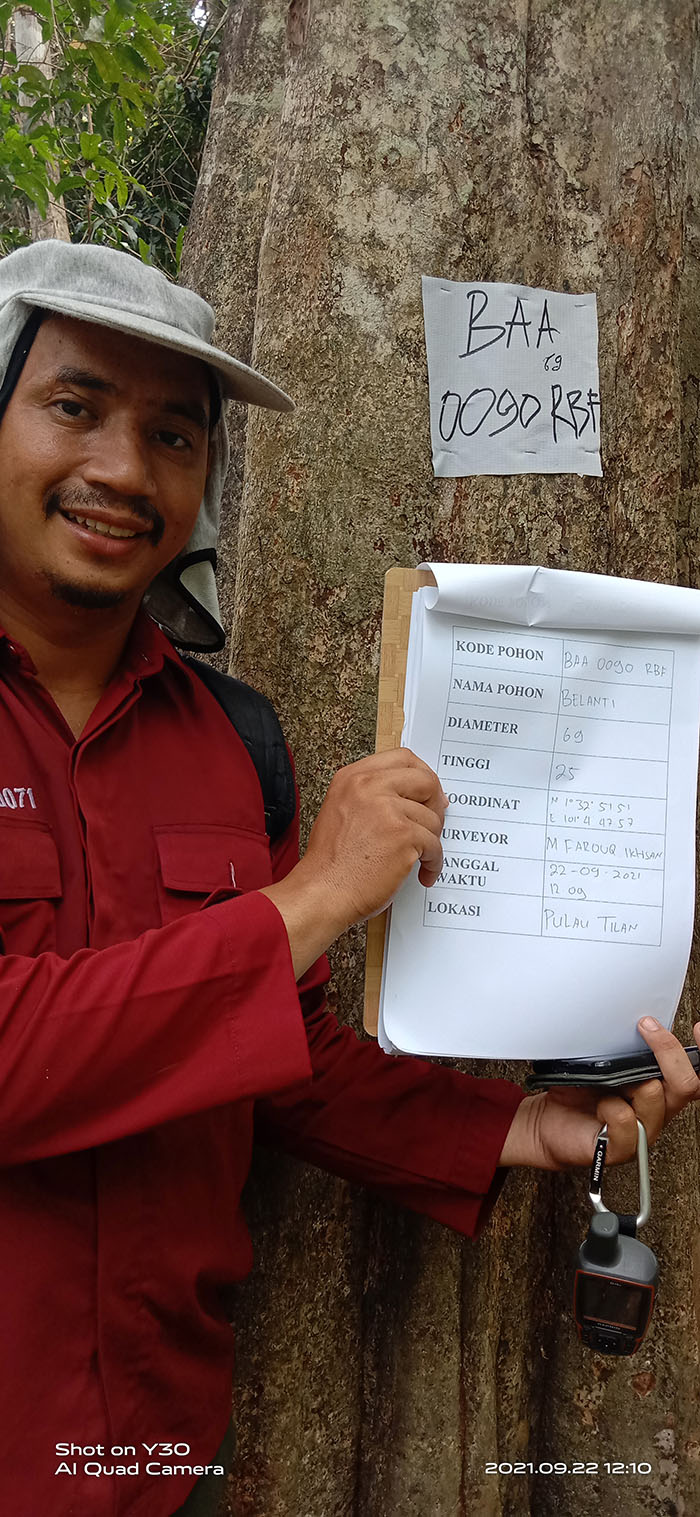 BAA
69
0090 RBF
KODE POHON BAA 0090 RBF
NAMA POHON BELANTI
DIAMETER 69
TINGGI 25
OORDINAT N 1°32' 51 51
E 101°4 47 57
URVEYOR M FAROUQ IKHSAN
ANGGAL 22-09-2021
WAKTU 12 09
LOKASI PULAU TILAN
0071
GARMIN
Shot on Y30
AI Quad Camera
2021.09.22 12:10